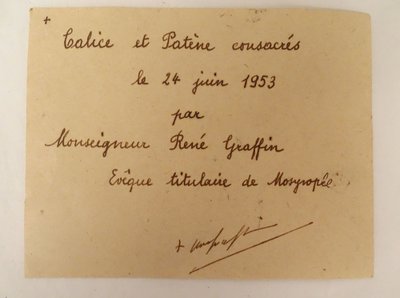 +
Calice et Patène consacrés
le 24 juin 1953
par
Monseigneur René Graffin
Evêque titulaire de Mosynopée
+